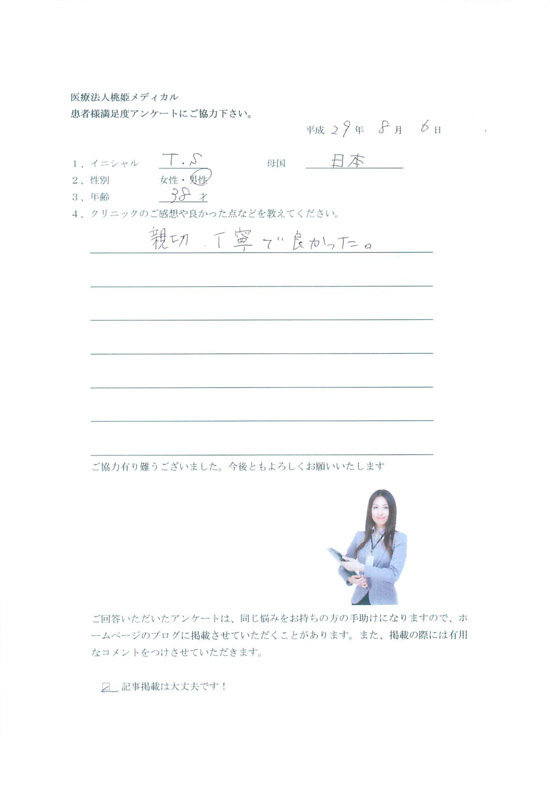 医療法人桃姫メディカル
患者様満足度アンケートにご協力下さい。
平成 29 年 8 月 6 日
1、イニシャル T.S 母国 日本
2、性別 女性・男性
3、年齢 38 才
4、クリニックのご感想や良かった点などを教えてください。
親切、丁寧で良かった。
ご協力有り難うございました。今後ともよろしくお願いいたします
ご回答いただいたアンケートは、同じ悩みをお持ちの方の手助けになりますので、ホ
ームページのブログに掲載させていただくことがあります。また、掲載の際には有用
なコメントをつけさせていただきます。
☑ 記事掲載は大丈夫です！